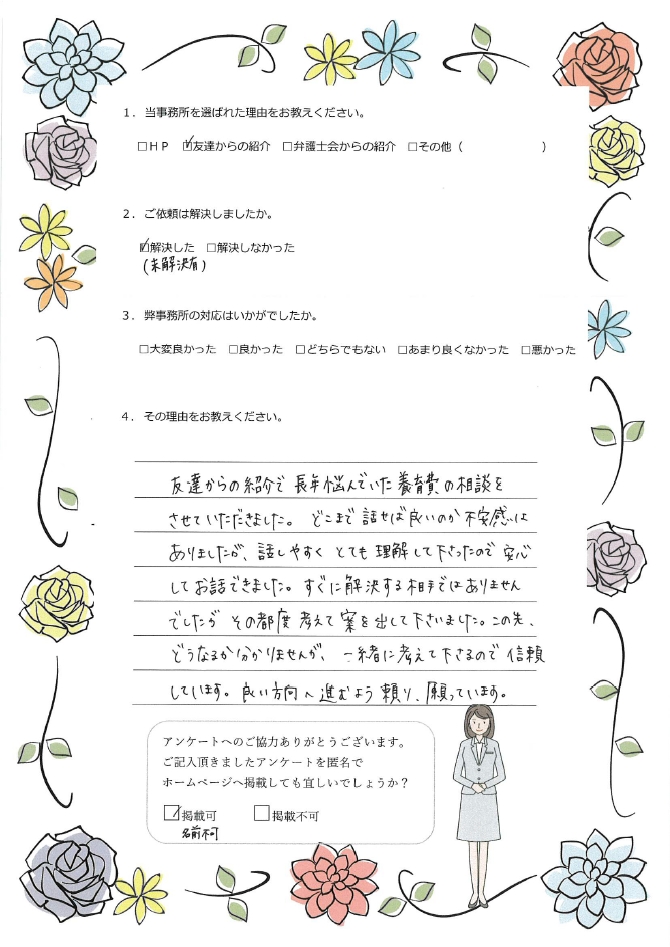 1．当事務所を選ばれた理由をお教えください。
□ＨＰ ☑友達からの紹介 □弁護士会からの紹介 □その他（ ）
2．ご依頼は解決しましたか。
☑解決した □解決しなかった
(未解決有)
3．弊事務所の対応はいかがでしたか。
□大変良かった □良かった □どちらでもない □あまり良くなかった □悪かった
4．その理由をお教えください。
友達からの紹介で 長年悩んでいた養育費の相談を
させていただきました。 どこまで話せば良いのか不安感は
ありましたが、話しやすく とても理解して下さったので 安心
してお話できました。すぐに解決する相手ではありません
でしたが その都度 考えて 案を出して下さいました。この先、
どうなるか分かりませんが、 一緒に考えて下さるので 信頼
しています。良い方向へ進むよう 頼り、願っています。
アンケートへのご協力ありがとうございます。
ご記入頂きましたアンケートを匿名で
ホームページへ掲載しても宜しいでしょうか？
☑掲載可 □掲載不可
名前不可